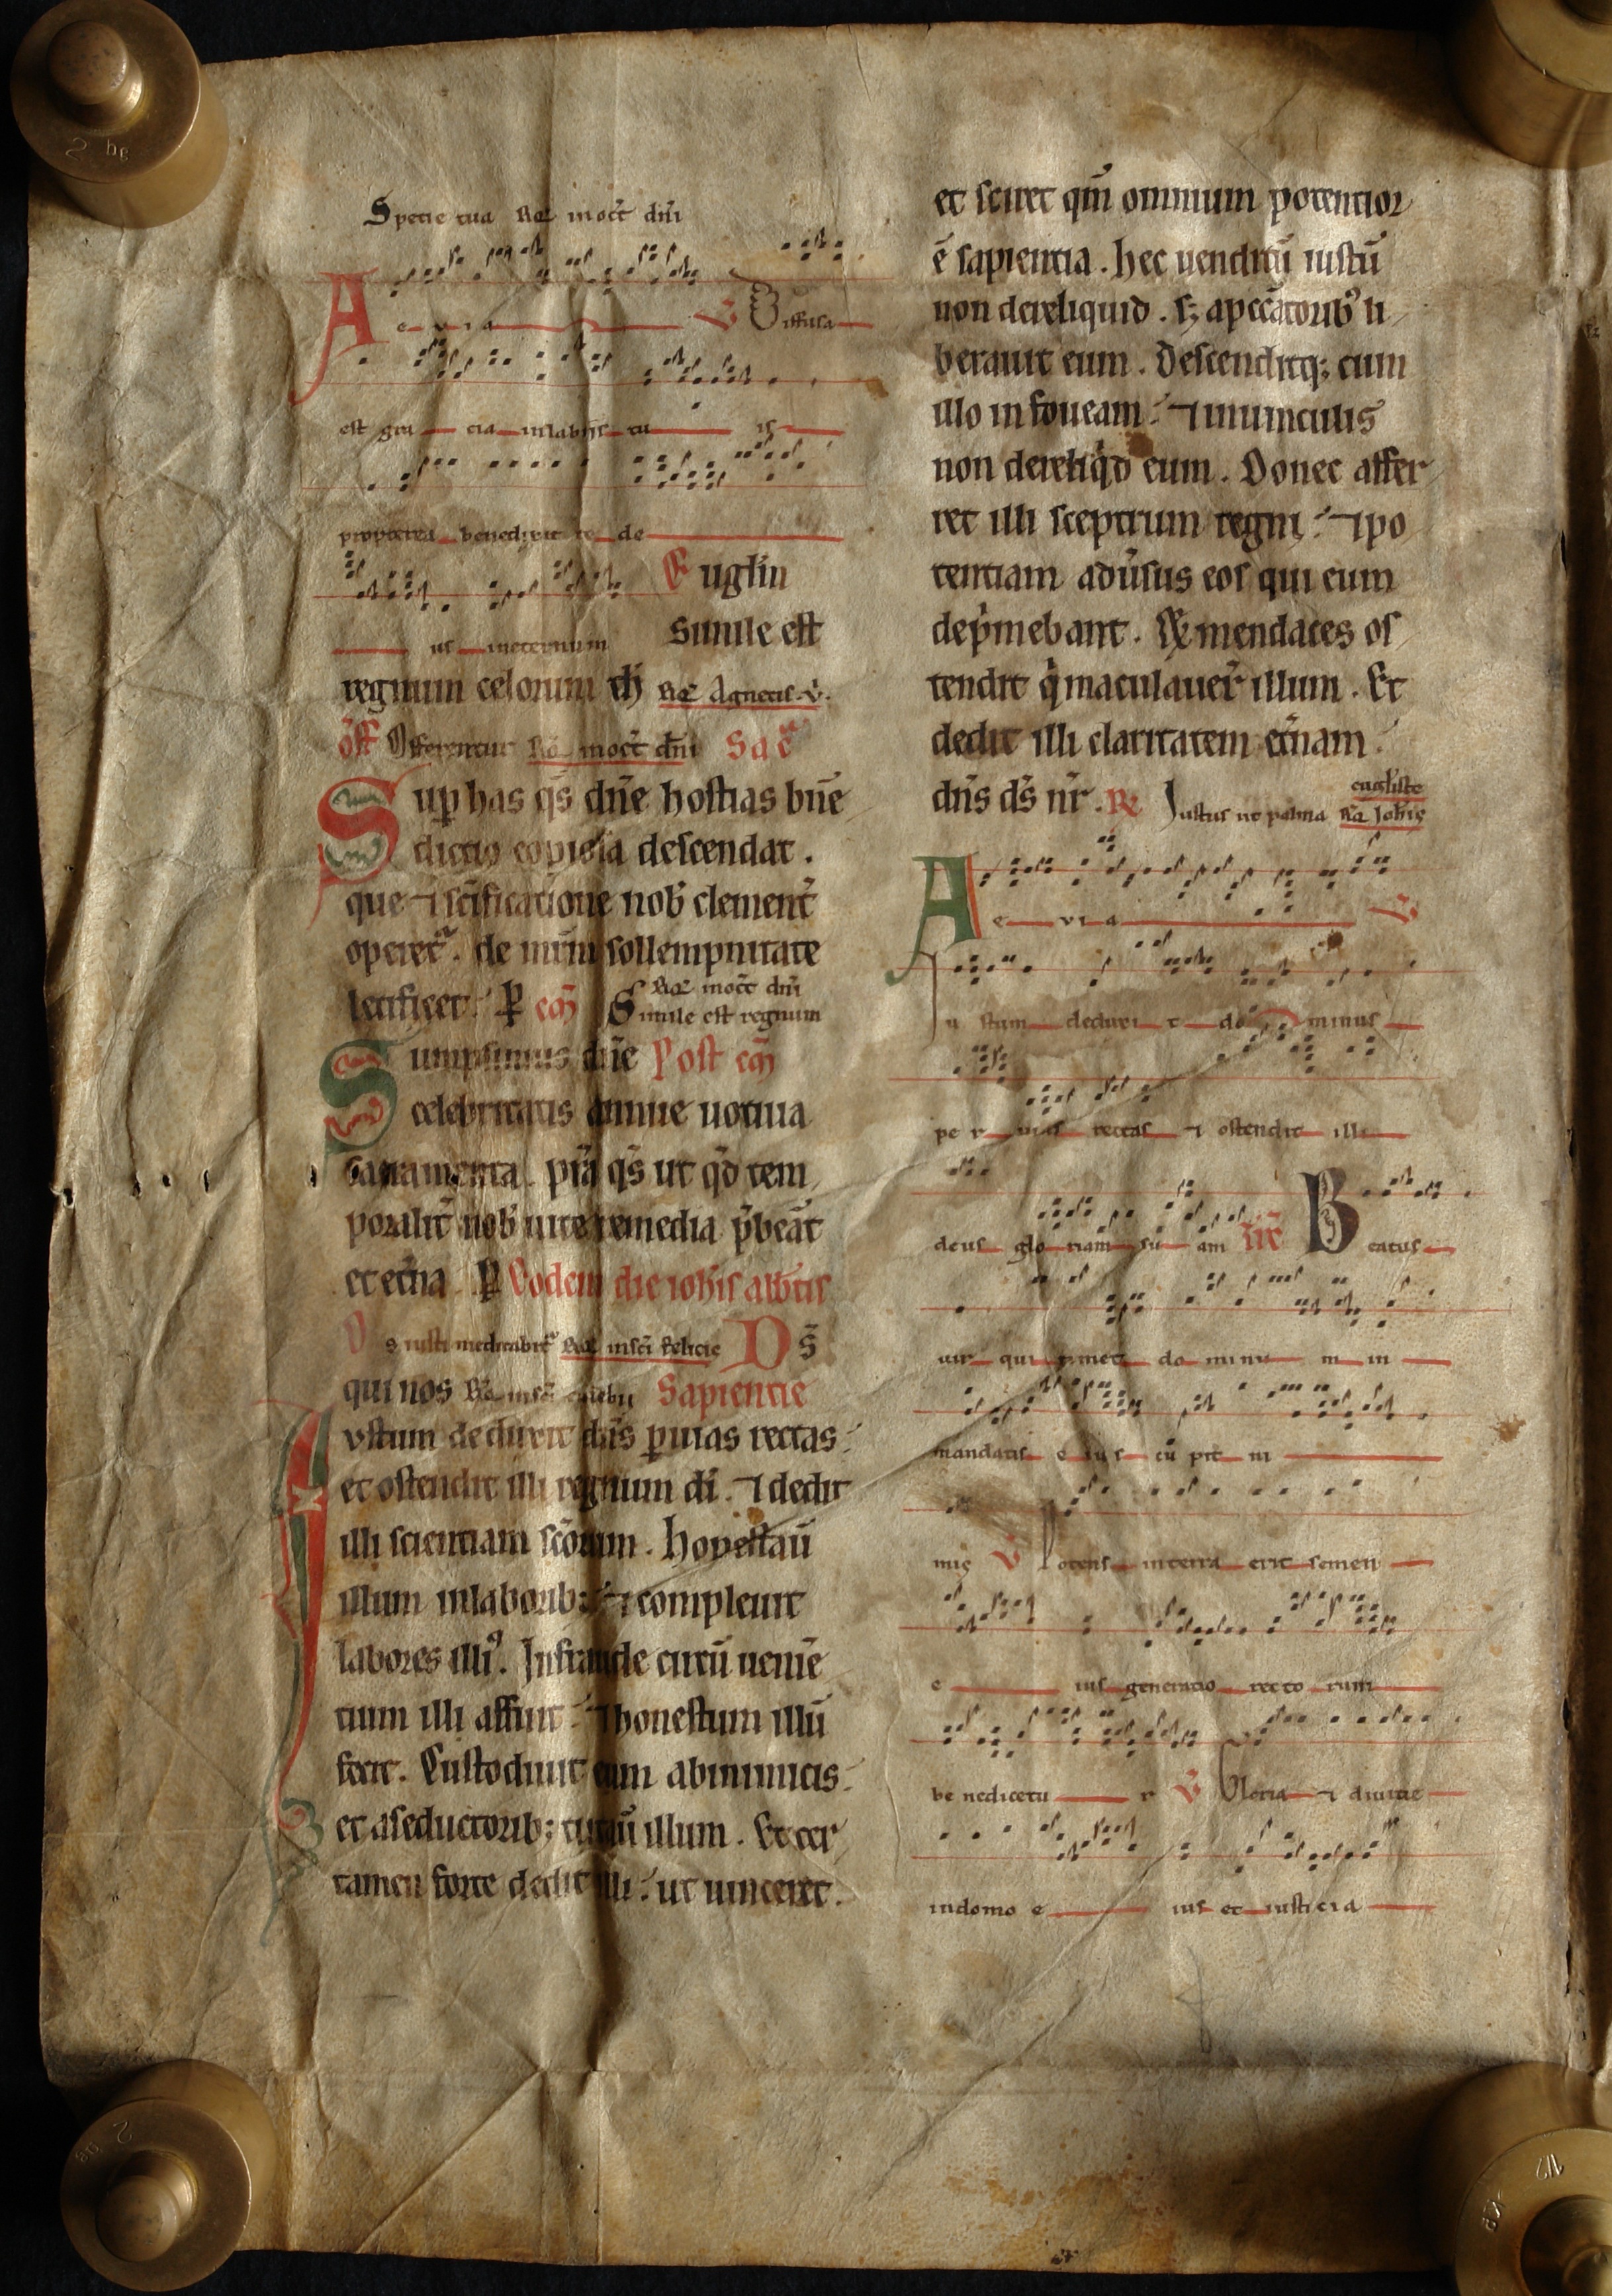 Specie tua Rꝫ in oct̄ dn̄i
A e v i a V Diffusa
est gra cia in labijs tu is
propterea benedixit te de
us in eternum
Euglīu
Simile est
regnum celorum th̄ Rꝫ Agnetis. v̇.
off Offerentur Rꝫ in oct̄ dn̄i Sac̄
Sup has qs̄ dn̄e hostias bn̄e
dictio copiosa descendat.
que ⁊ sc̄ificatione nob̄ clement̄
operet᷑. ⁊ de mr̄m sollempnitate
letificet. P com̄ Rꝫ in oct̄ dn̄i
Simile est regnum
Sumpsimus dn̄e Post com̄
celebritatis annue uotiua
sacramenta. pr̄a qs̄ ut qd̄ tem
poralit̄ nob̄ uite remedia p̄beāt
et et̄na P Eodem die ioh̄is alb̄tis
Os iusti meditabit᷑ Rꝫ in sc̄i felicis Ds̄
qui nos Rꝫ in sc̄i Sapientie
Iustum deduxit dn̄s p uias rectas.
et ostendit illi regnum dī. ⁊ dedit
illi scientiam sc̄orum. Honestauit̄
illum in laborib; ⁊ compleuit
labores illiꝰ. In fraude circū uenīe
tium illi affuit. ⁊ honestum illū
fecit. Custodiuit eum ab inimicis.
et a seductorib; tutauit̄ illum. Et cer
tamen forte dedit illi. ut uinceret.
et sciret qm̄ omnium potentior
ē sapientia. hec uenditū iustū
non dereliquid. sꝫ a peccātoribꝰ li
berauit eum. Descenditq; cum
illo in foueam. ⁊ in uinculis
non dereliqd̄ eum. Donec affer
ret illi sceptrum regni. ⁊ po
tentiam adūsus eos qui eum
dep̄mebant. Et mendaces os
tendit q̇ maculauer̄ illum. Et
dedit illi claritatem et̄nam.
dn̄s ds̄ nr̄. R Iustus ut palma Rꝫ Ioh̄is
euḡliste
A e v i a V
Iu stum deduxi t do minus
pe r uias rectas ⁊ ostendit illi
deus glo riam su am Tr̄c Beatus
uir qui timet do minu m in
mandatis e ius cu pit ni
mis V Potens in terra erit semen
e ius generatio recto rum
be nedicetu r V Gloria ⁊ diuitie
in domo e ius et iusticia